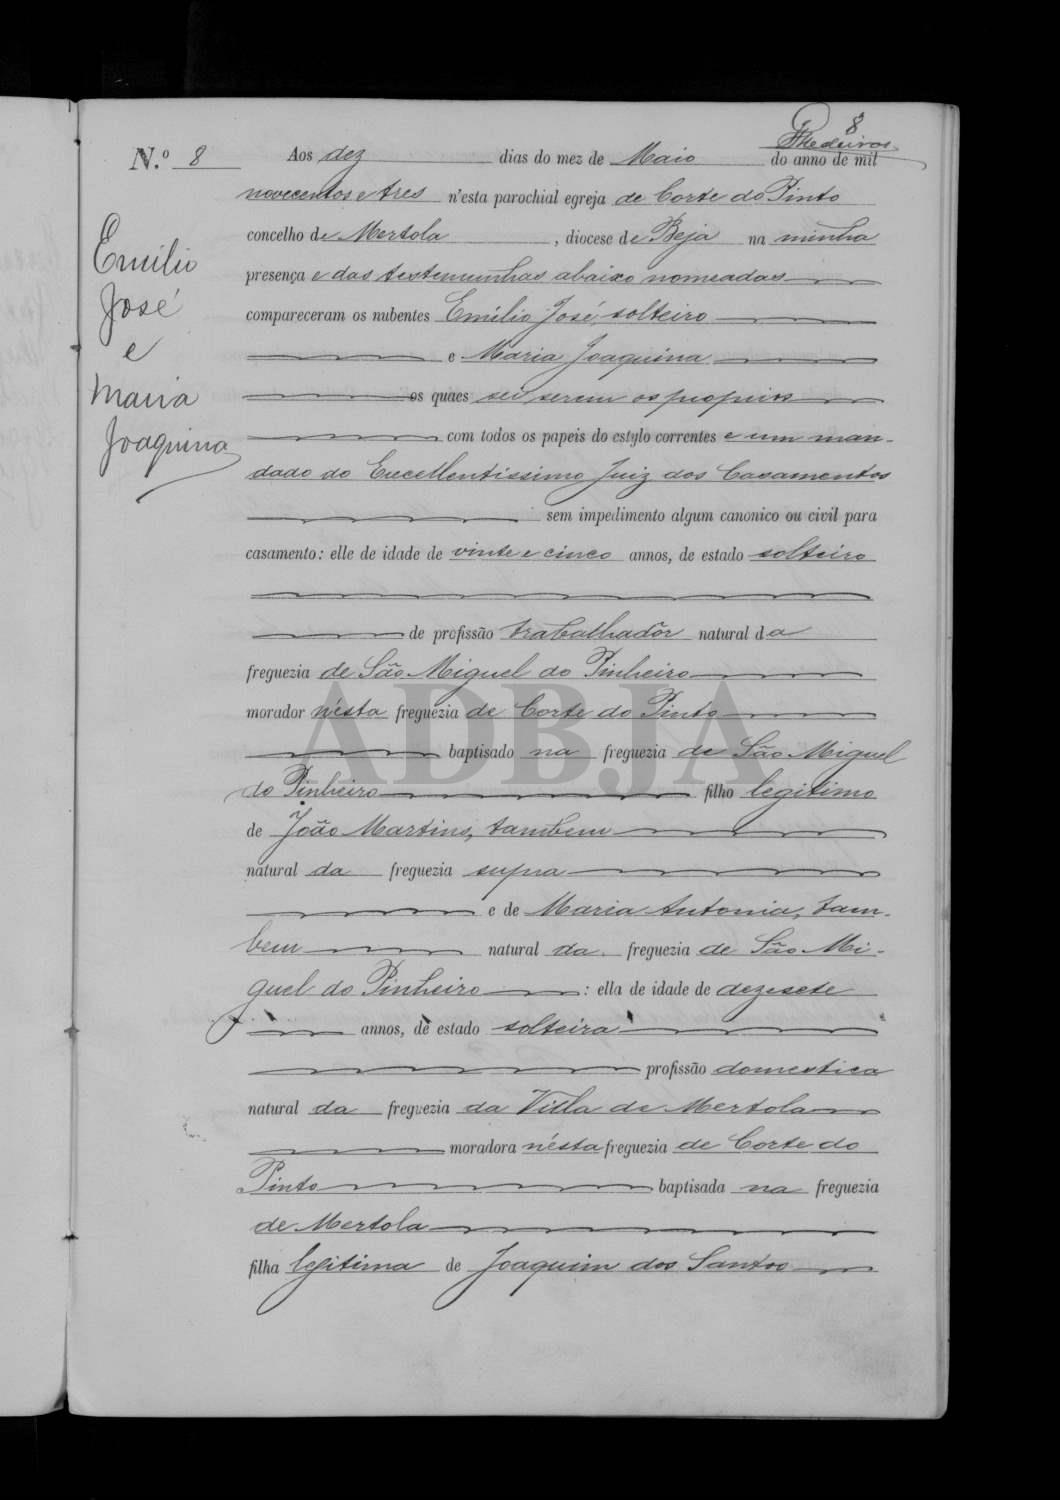 8
PMedeiros
N.º 8
Aos dez dias do mez de Maio do anno de mil
novecentos e tres n'esta parochial egreja de Corte do Pinto
concelho de Mertola, diocese de Beja na minha
presença e das testemunhas abaixo nomeadas
compareceram os nubentes Emilio José, solteiro
e Maria Joaquina
os quaes sei serem os proprios
com todos os papeis do estylo correntes e um man-
dado do Excellentissimo Juiz dos Casamentos
sem impedimento algum canonico ou civil para
casamento: elle de idade de vinte e cinco annos, de estado solteiro
de profissão trabalhador natural da
freguezia de São Miguel do Pinheiro
morador n'ésta freguezia de Corte do Pinto
baptisado na freguezia de São Miguel
do Pinheiro filho legitimo
de João Martins, tambem
natural da freguezia supra
e de Maria Antonia, tam-
bem natural da freguezia de São Mi-
guel do Pinheiro: ella de idade de dezesete
annos, de estado solteira
profissão domestica
natural da freguezia da Villa de Mertola
moradora n'ésta freguezia de Corte do
Pinto baptisada na freguezia
de Mertola
filha legitima de Joaquim dos Santos
Emilio
José
e
Maria
Joaquina
ADBJA